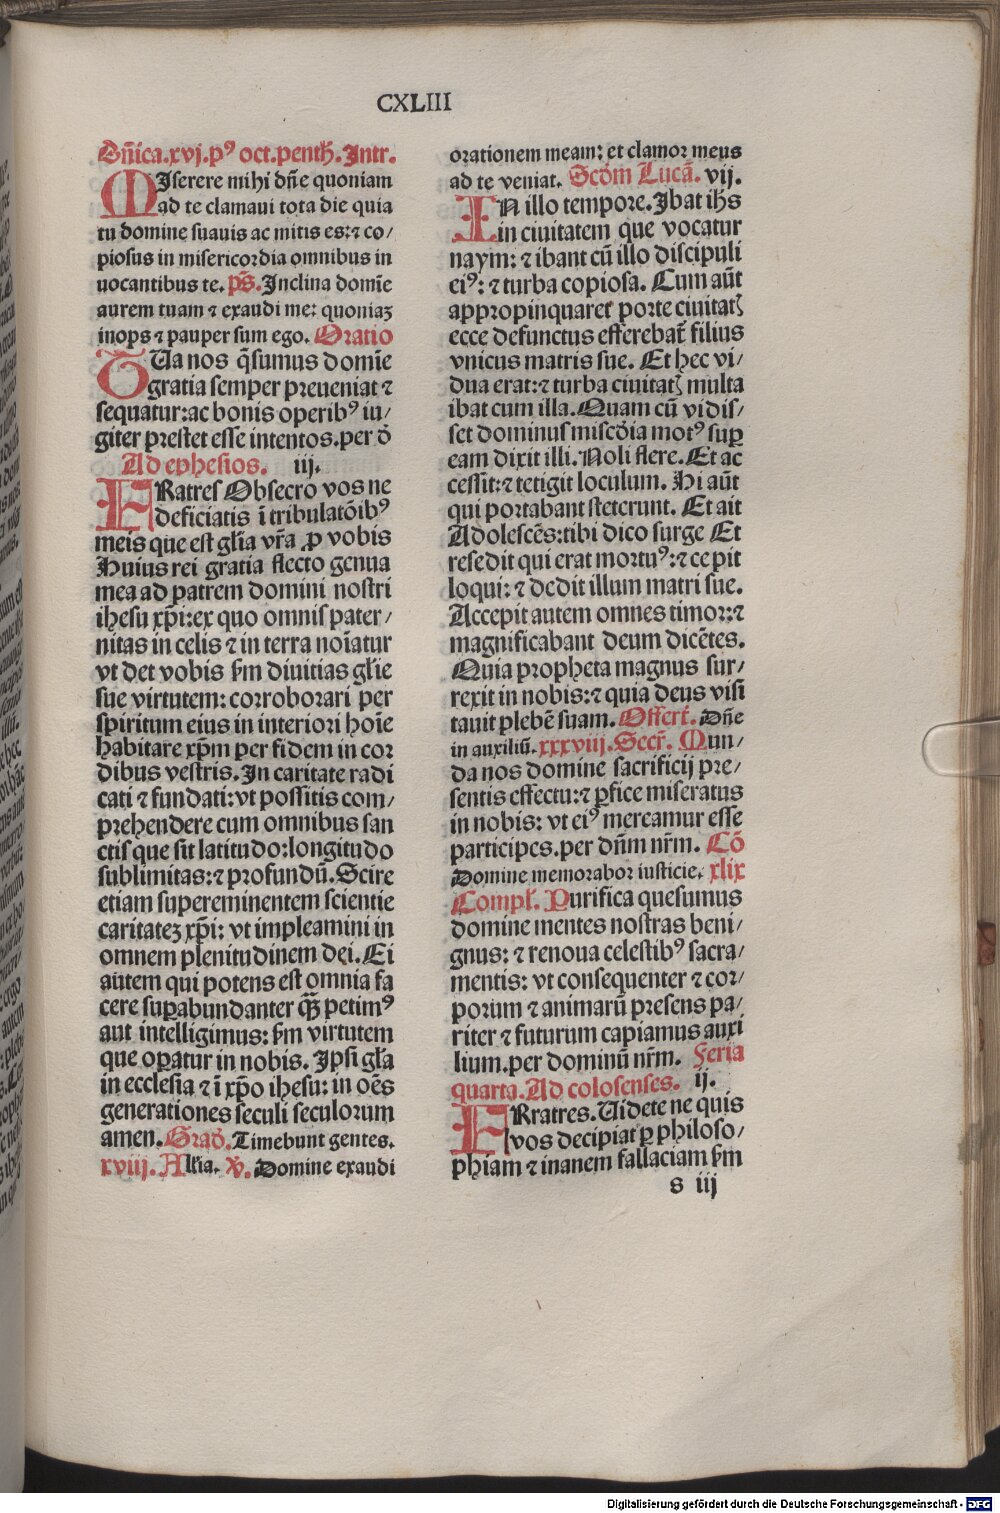 CXLIII
Dn̄ica.xvj.pꝰ oct.penth̄. Intr.
MIserere mihi dn̄e quoniam
ad te clamaui tota die quia
tu domine suauis ac mitis es:⁊ co/
piosus in misericordia omnibus in
uocantibus te. ps̄. Inclina domīe
aurem tuam ⁊ exaudi me: quoniaꝫ
inops ⁊ pauper sum ego. Oratio
TUa nos q̄sumus domīe
gratia semper preueniat ⁊
sequatur:ac bonis operibꝰ iu/
giter prestet esse intentos.per d̄
Ad ephesios. iij.
FRatres Obsecro vos ne
deficiatis ī tribulatōibꝰ
meis que est gl̄ia vr̄a ꝓ vobis
Huius rei gratia flecto genua
mea ad patrem domini nostri
ihesu xp̄i:ex quo omnis pater/
nitas in celis ⁊ in terra noīatur
vt det vobis ẜm diuitias gl̄ie
sue virtutem: corroborari per
spiritum eius in interiori hoīe
habitare xp̄m per fidem in cor
dibus vestris. In caritate radi
cati ⁊ fundati:vt possitis com/
prehendere cum omnibus san
ctis que sit latitudo:longitudo
sublimitas:⁊ profundū. Scire
etiam supereminentem scientie
caritateꝫ xp̄i: vt impleamini in
omnem plenitudinem dei. Ei
autem qui potens est omnia fa
cere suꝑabundanter q̄ꝫ petimꝰ
aut intelligimus: ẜm virtutem
que oꝑatur in nobis. Ipsi gl̄a
in ecclesia ⁊ ī xp̄o ihesu: in oēs
generationes seculi seculorum
amen. Grad̄. Timebunt gentes.
xviij. Alľia. ꝟ. Domine exaudi
orationem meam: et clamor meus
ad te veniat. Scd̄m Lucā. vij.
IN illo tempore. Ibat ih̄s
in ciuitatem que vocatur
naym: ⁊ ibant cū illo discipuli
eiꝰ: ⁊ turba copiosa. Cum aūt
appropinquaret porte ciuitatꝭ
ecce defunctus efferebat̄ filius
vnicus matris sue. Et hec vi/
dua erat:⁊ turba ciuitatꝭ multa
ibat cum illa. Quam cū vidis/
set dominus miscd̄ia motꝰ suꝑ
eam dixit illi. Noli flere. Et ac
cessit:⁊ tetigit loculum. Hi aūt
qui portabant steterunt. Et ait
Adolescēs:tibi dico surge Et
resedit qui erat mortuꝰ:⁊ cepit
loqui: ⁊ dedit illum matri sue.
Accepit autem omnes timor:⁊
magnificabant deum dicētes.
Quia propheta magnus sur/
rexit in nobis:⁊ quia deus visi
tauit plebē suam. Offert̄. Dn̄e
in auxiliū. xxxviij. Secr̄. Mun/
da nos domine sacrificij pre/
sentis effectu:⁊ ꝑfice miseratus
in nobis: vt eiꝰ mercamur esse
participes.per dn̄m nr̄m. Cō
Domine memorabor iusticie. xlix
Compl̄. Purifica quesumus
domine mentes nostras beni/
gnus: ⁊ renoua celestibꝰ sacra/
mentis: vt consequenter ⁊ cor/
porum ⁊ animarū presens pa/
riter ⁊ futurum capiamus auxi
lium.per dominū nr̄m. Feria
quarta. Ad colosenses. ij.
FRratres. Uidete ne quis
vos decipiat ꝑ philoso/
phiam ⁊ inanem fallaciam ẜm
s iij
Digitalisierung gefördert durch die Deutsche Forschungsgemeinschaft - DFG